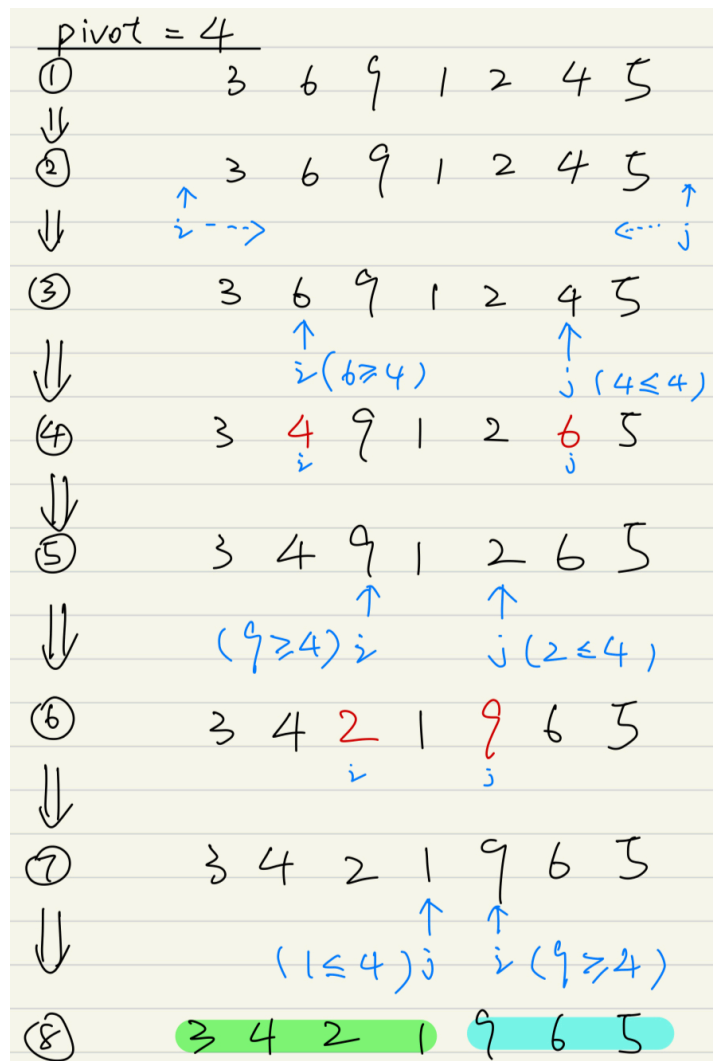 pivot = 4
① 3 6 9 1 2 4 5
⇓
② 3 6 9 1 2 4 5
↑ ↑
⇓ i ---> <---- j
③ 3 6 9 1 2 4 5
↑ ↑
⇓ i(6≥4) j(4≤4)
④ 3 4 9 1 2 6 5
i j
⇓
⑤ 3 4 9 1 2 6 5
↑ ↑
⇓ (9≥4)i j(2≤4)
⑥ 3 4 2 1 9 6 5
i j
⇓
⑦ 3 4 2 1 9 6 5
↑ ↑
⇓ (1≤4)j i(9≥4)
⑧ 3 4 2 1 9 6 5